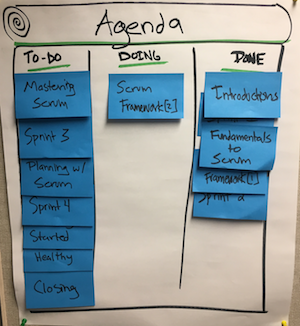 Agenda
TO-DO
Mastering
Scrum
Sprint 3
Planning w/
Scrum
Sprint 4
Started
Healthy
Closing
DOING
Scrum
Framework[2]
DONE
Introductions
Fundamentals
to
Scrum
Framework[1]
Sprint 2